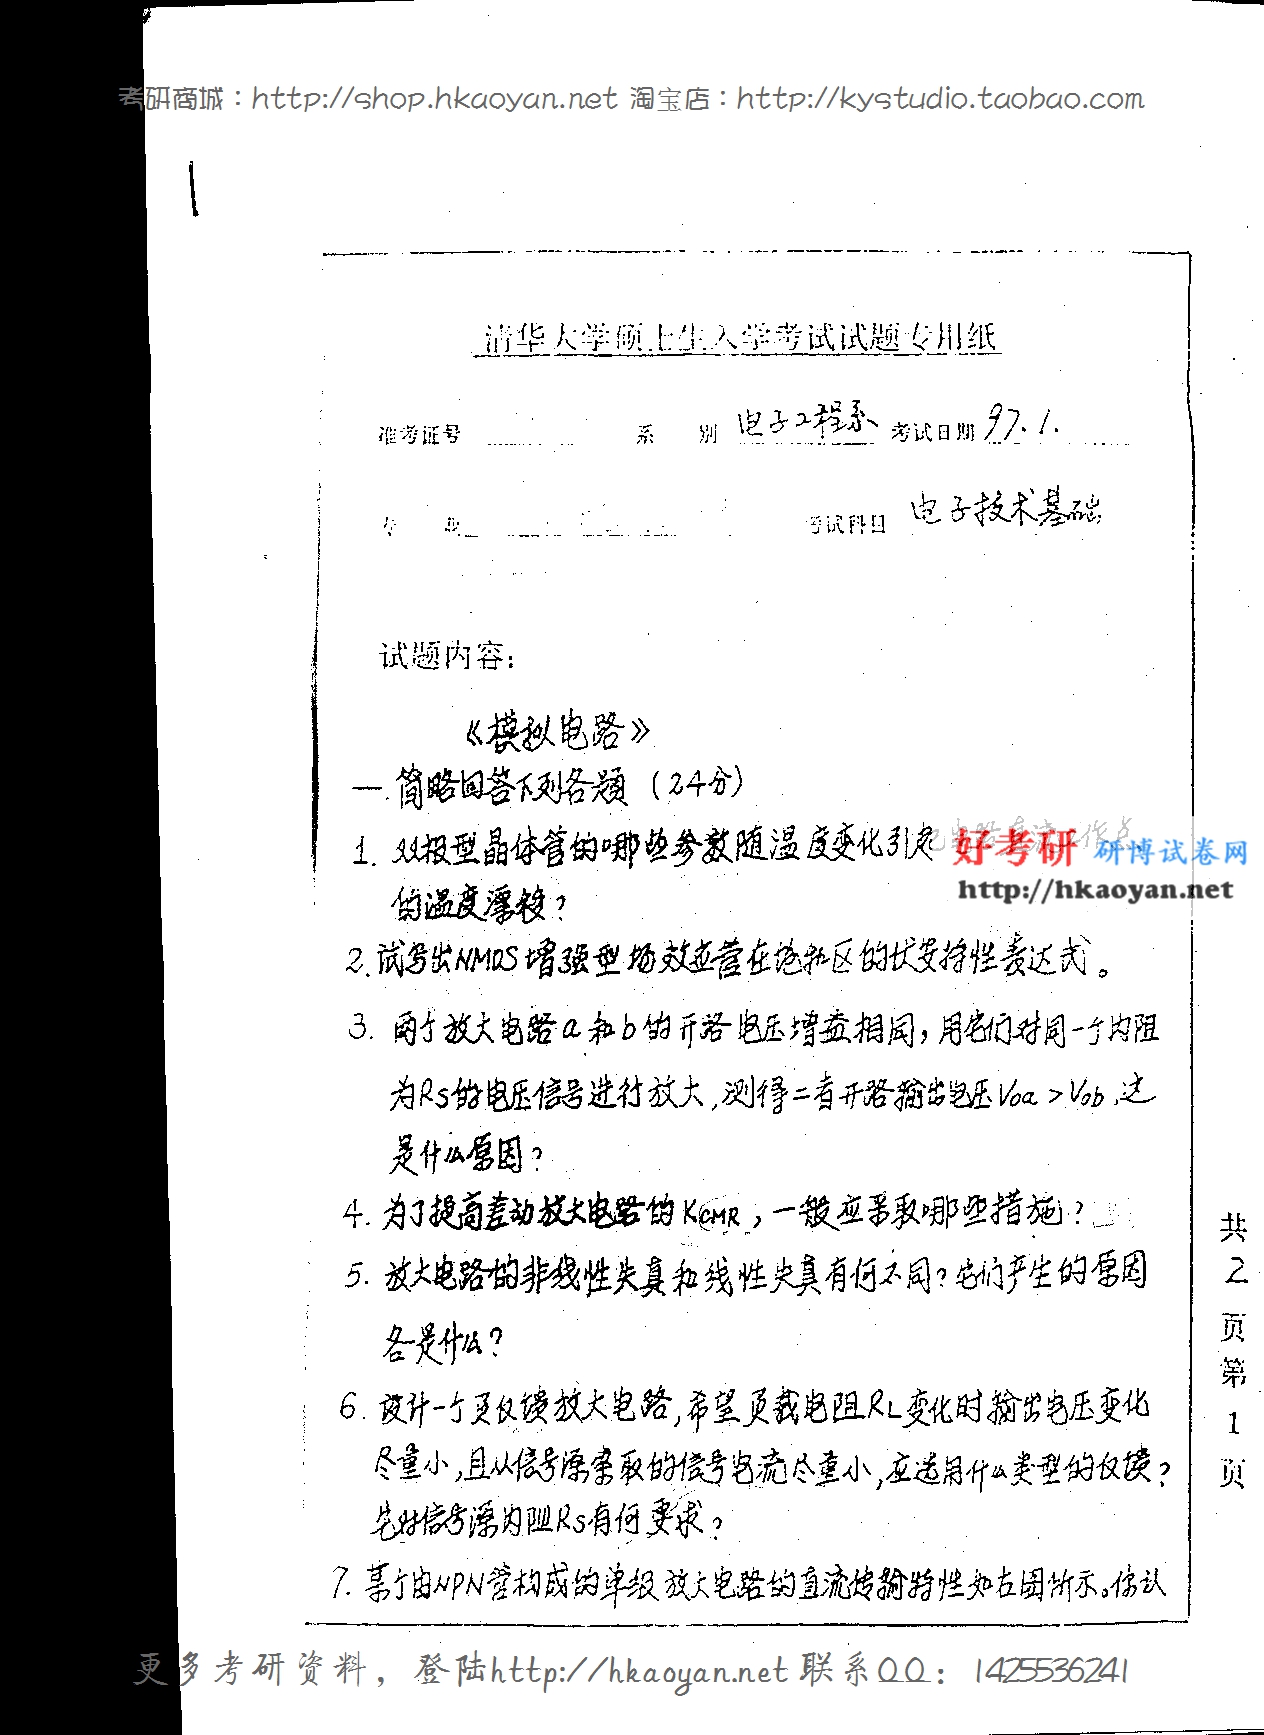 考研商城：http://shop.hkaoyan.net 淘宝店：http://kystudio.taobao.com
清华大学硕士生入学考试试题专用纸
准考证号 系 别 电子工程系 考试日期 97.1.
专 业 考试科目 电子技术基础
试题内容：
《模拟电路》
一.简略回答下列各题（24分）
1. 双极型晶体管的哪些参数随温度变化引起
好考研 研博试卷网
http://hkaoyan.net
的温度漂移？
2.试写出NMOS增强型场效应管在饱和区的伏安特性表达式。
3. 两个放大电路a和b的开路电压增益相同，用它们对同一个内阻
为Rs的电压信号进行放大，测得二者开路输出电压Voa＞Vob，这
是什么原因？
4. 为了提高差动放大电路的KCMR，一般应采取哪些措施？
5. 放大电路的非线性失真和线性失真有何不同？它们产生的原因
各是什么？
6. 设计一个负反馈放大电路，希望负载电阻RL变化时输出电压变化
尽量小，且从信号源索取的信号电流尽量小，应选用什么类型的反馈？
它对信号源内阻Rs有何要求？
7. 某个由NPN管构成的单级放大电路的直流传输特性如右图所示。你认
共2页第1页
更多考研资料，登陆http://hkaoyan.net 联系QQ：1425536241